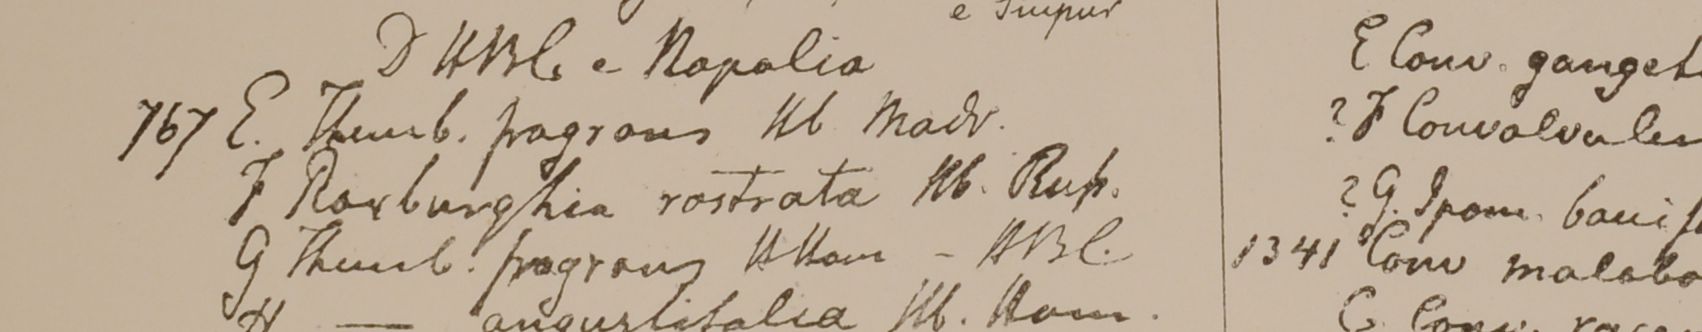 e Singpur
D HBC. e Napalia
767 E. Thunb. fragrans Hb Madr.
F Roxburghia rostrata Hb. Rup.
G Thunb. fragrans HHam - HBC.
H — angustifolia Hb. Ham.
E Conv. ganget
? F Convolvulus
? G. Ipom.
1341 Conv malaba
C. Conv.